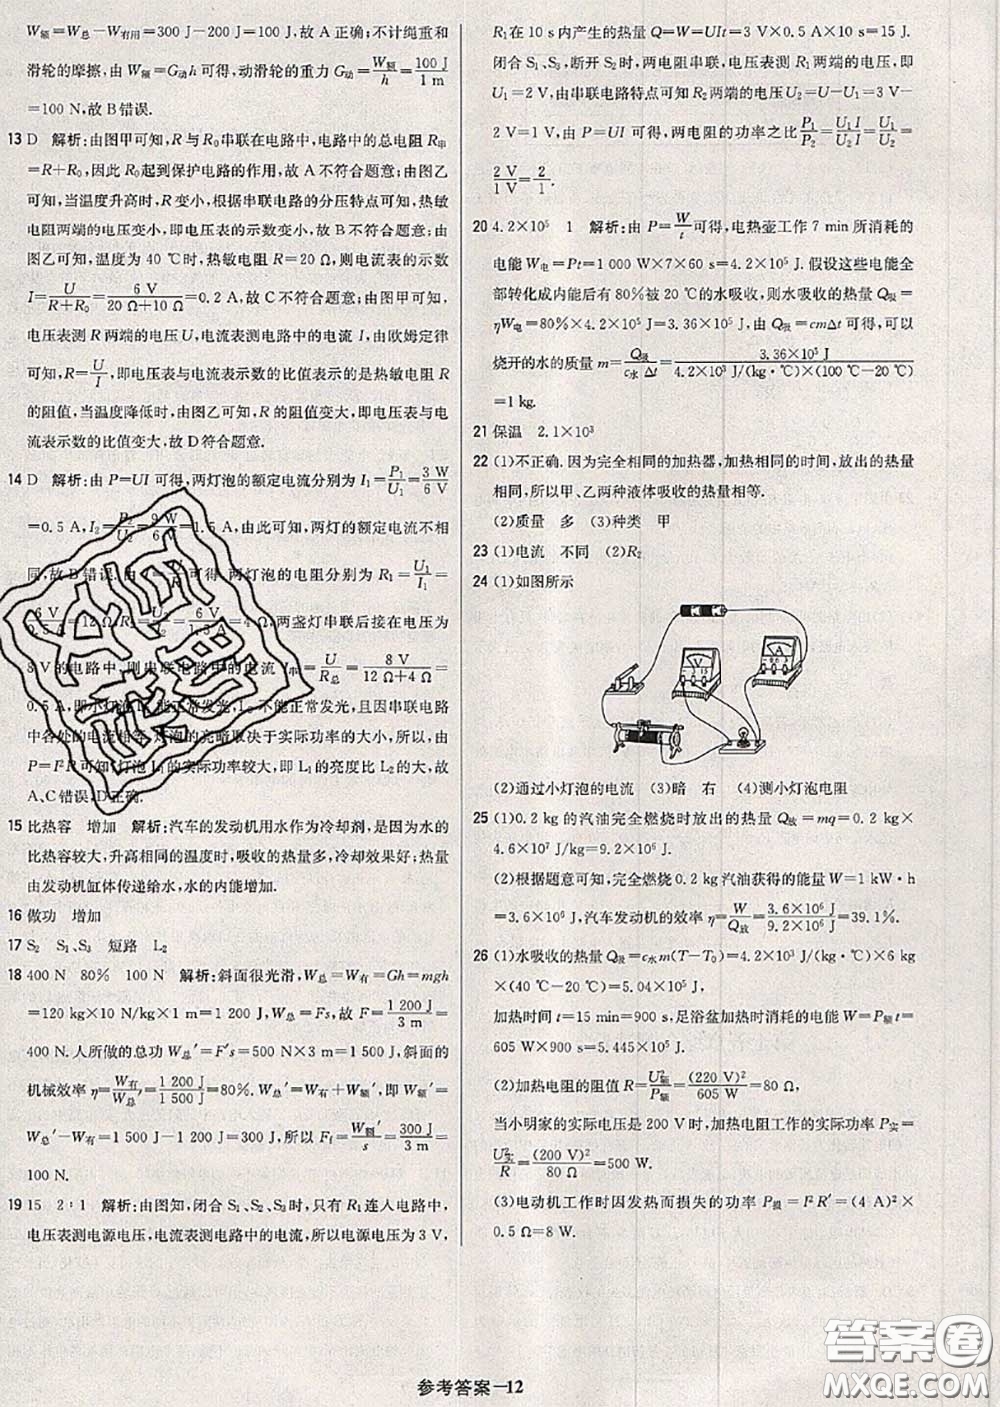 W额=W总-W有用=300 J-200 J=100 J,故 A 正确;不计绳重和
滑轮的摩擦,由 W额=G动h 可得,动滑轮的重力 G动=W额/h=100 J/1 m
=100 N,故 B 错误.
13 D 解析:由图甲可知,R 与 R0串联在电路中,电路中的总电阻 R串
=R+R0,因此 R0起到保护电路的作用,故 A 不符合题意;由图乙
可知,当温度升高时,R 变小,根据串联电路的分压特点可知,热敏
电阻两端的电压变小,即电压表的示数变小,故 B 不符合题意;由
图乙可知,温度为 40 ℃时,热敏电阻 R=20 Ω,则电流表的示数
I=U/(R+R0)=6 V/(20 Ω+10 Ω)=0.2 A,故 C 不符合题意;由图甲可知,
电压表测 R 两端的电压 U,电流表测电路中的电流 I,由欧姆定律
可知,R=U/I,即电压表与电流表示数的比值表示的是热敏电阻 R
的阻值,当温度降低时,由图乙可知,R 的阻值变大,即电压表与电
流表示数的比值变大,故 D 符合题意.
14 D 解析:由 P=UI 可得,两灯泡的额定电流分别为 I1=P1/U1=3 W/6 V
=0.5 A,I2=P2/U2=9 W/6 V=1.5 A,由此可知,两灯的额定电流不相
同,故 B 错误.由 可得,两灯泡的电阻分别为 R1=U1/I1
=6 V/0.5 A=12 Ω,R2=U2/I2=6 V/1.5 A=4 Ω,两盏灯串联后接在电压为
8 V 的电路中,则串联电路中的电流 I=U/R总=8 V/(12 Ω+4 Ω)=
0.5 A,即小灯泡 L1能正常发光,L2不能正常发光,且因串联电路
中各处的电流相等,灯泡的亮暗取决于实际功率的大小,所以,由
P=I²R 可知,灯泡 L1的实际功率较大,即 L1的亮度比 L2的大,故
A、C 错误,D 正确.
15 比热容 增加 解析:汽车的发动机用水作为冷却剂,是因为水的
比热容较大,升高相同的温度时,吸收的热量多,冷却效果好;热量
由发动机缸体传递给水,水的内能增加.
16 做功 增加
17 S2 S1、S3 短路 L2
18 400 N 80% 100 N 解析:斜面很光滑,W总=W有=Gh=mgh
=120 kg×10 N/kg×1 m=1 200 J,由 W总=Fs,故 F=1 200 J/3 m=
400 N.人所做的总功 W总′=F′s=500 N×3 m=1 500 J,斜面的
机械效率 η=W有/W总′=1 200 J/1 500 J=80%.W总′=W有+W额′,即 W额′=
W总′-W有=1 500 J-1 200 J=300 J,所以 Ff=W额′/s=300 J/3 m=
100 N.
19 15 2∶1 解析:由图知,闭合 S1、S2、S3时,只有 R1连入电路中,
电压表测电源电压,电流表测电路中的电流,所以电源电压为 3 V,
R1在 10 s 内产生的热量 Q=W=UIt=3 V×0.5 A×10 s=15 J.
闭合 S1、S3,断开 S2时,两电阻串联,电压表测 R1两端的电压,即
U1=2 V,由串联电路特点可知 R2两端的电压 U2=U-U1=3 V-
2 V=1 V;由 P=UI 可得,两电阻的功率之比 P1/P2=U1I/U2I=U1/U2=
2 V/1 V=2/1.
20 4.2×10⁵ 1 解析:由 P=W/t可得,电热壶工作 7 min 所消耗的
电能 W电=Pt=1 000 W×7×60 s=4.2×10⁵ J.假设这些电能
全部转化成内能后有 80%被 20 ℃的水吸收,则水吸收的热量 Q吸=
ηW电=80%×4.2×10⁵ J=3.36×10⁵ J,由 Q吸=cmΔt 可得,可以
烧开的水的质量 m=Q吸/(c水Δt)=3.36×10⁵ J/(4.2×10³ J/(kg·℃)×(100 ℃-20 ℃))
=1 kg.
21 保温 2.1×10³
22 (1)不正确.因为完全相同的加热器,加热相同的时间,放出的热量
相同,所以甲、乙两种液体吸收的热量相等.
(2)质量 多 (3)种类 甲
23 (1)电流 不同 (2)R2
24 (1)如图所示
V
A
(2)通过小灯泡的电流 (3)暗 右 (4)测小灯泡电阻
25 (1)0.2 kg 的汽油完全燃烧时放出的热量 Q放=mq=0.2 kg×
4.6×10⁷ J/kg=9.2×10⁶ J.
(2)根据题意可知,完全燃烧 0.2 kg 汽油获得的能量 W=1 kW·h
=3.6×10⁶ J,汽车发动机的效率 η=W/Q放=3.6×10⁶ J/9.2×10⁶ J=39.1%.
26 (1)水吸收的热量 Q吸=c水m(T-T0)=4.2×10³ J/(kg·℃)×6 kg
×(40 ℃-20 ℃)=5.04×10⁵ J,
加热时间 t=15 min=900 s,足浴盆加热时消耗的电能 W=P额t=
605 W×900 s=5.445×10⁵ J.
(2)加热电阻的阻值 R=U额²/P额=(220 V)²/605 W=80 Ω,
当小明家的实际电压是 200 V 时,加热电阻工作的实际功率 P实=
U实²/R=(200 V)²/80 Ω=500 W.
(3)电动机工作时因发热而损失的功率 P损=I²R′=(4 A)²×
0.5 Ω=8 W.
参考答案—12
答案圈
MXQE.COM